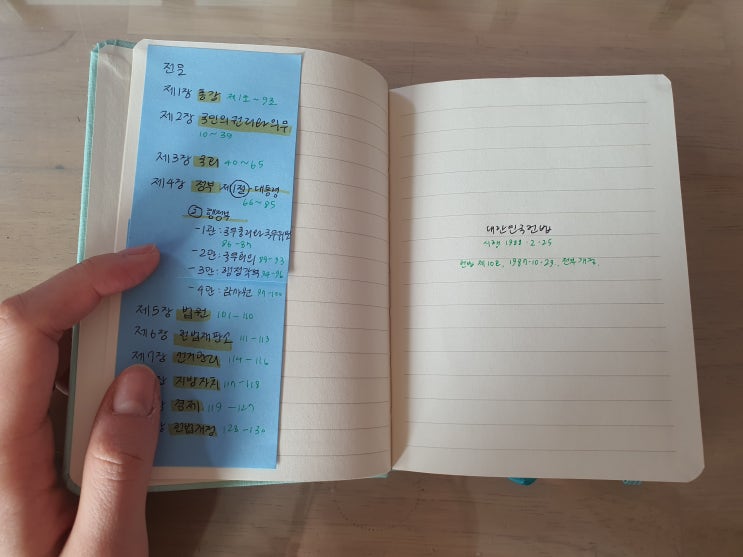 전문
제1장 총강 제1조~9조
제2장 국민의 권리와 의무
10~39
제3장 국회 40~65
제4장 정부 제1절 대통령
66~85
② 행정부
-1관: 국무총리와 국무위원
86-87
-2관: 국무회의 88-93
-3관: 행정각부 94-96
-4관: 감사원 97-100
제5장 법원 101-110
제6장 헌법재판소 111-113
제7장 선거관리 114-116
장 지방자치 117-118
경제 119-127
장 헌법개정 128-130
대한민국헌법
시행 1988.2.25
헌법 제10호, 1987.10.29, 전부개정.